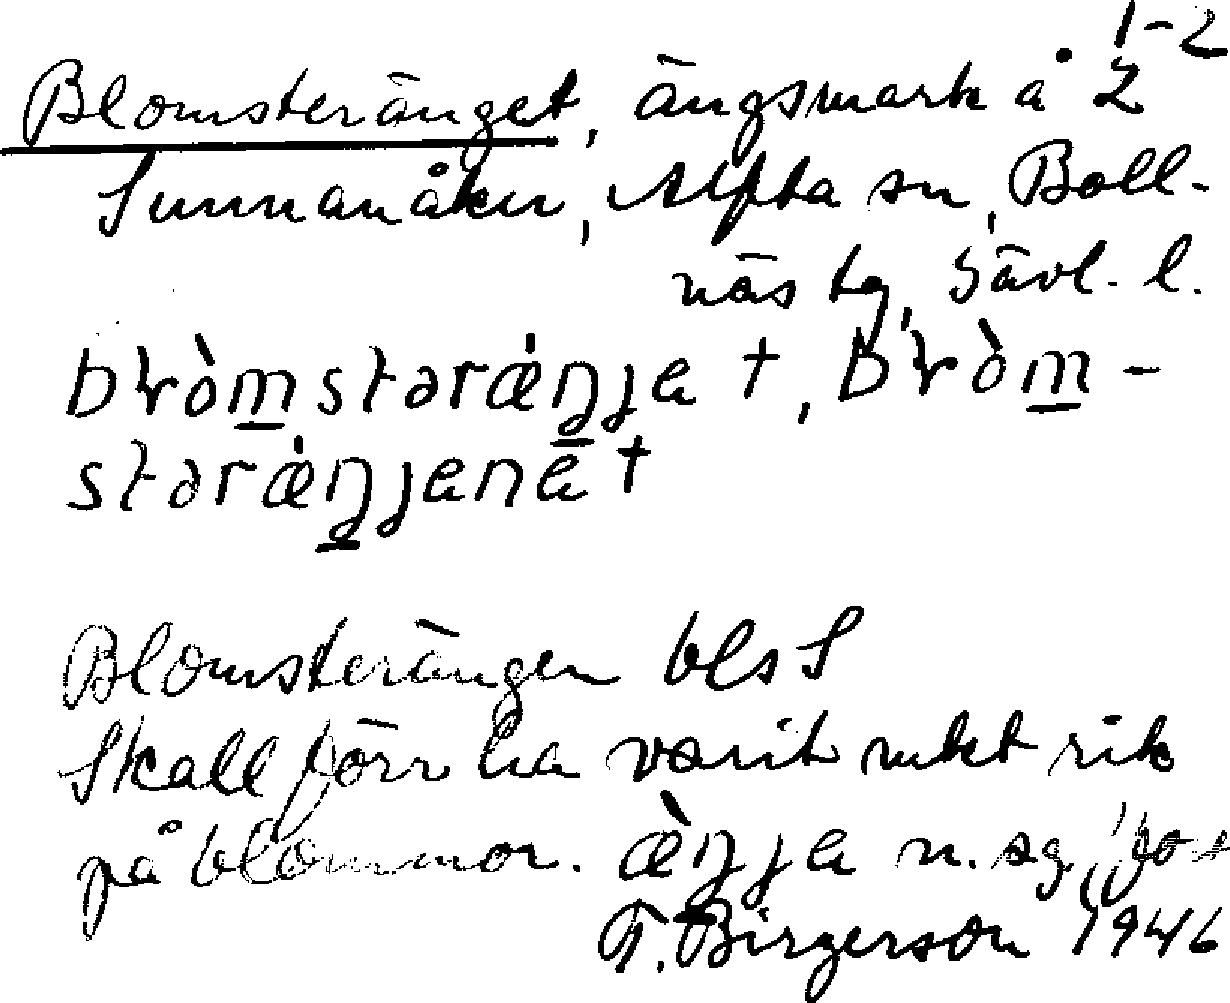 1-2
Blomsteränget, ängsmark å 2
Sunnanåker, Alfta sn, Boll-
näs tg, Gävl. l.
blòmstəræ̀ŋja †, blòm-
stəræ̀ŋjana †
Blomsterängen bls S
Skall förr ha varit mkt rik
på blommor. æ̀ŋja n. sg.
T. Birgerson 1946